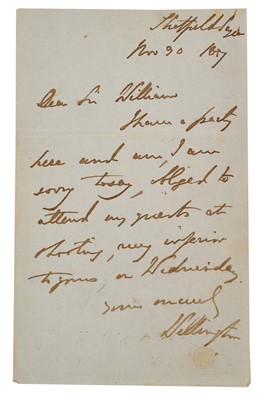 Nov 30 1857
Dear Sir William
I have a party
here and am, I am
sorry to say, obliged to
attend my guests at
shooting, very inferior
to yours, on Wednesday.
Yours sincerely
Wellington